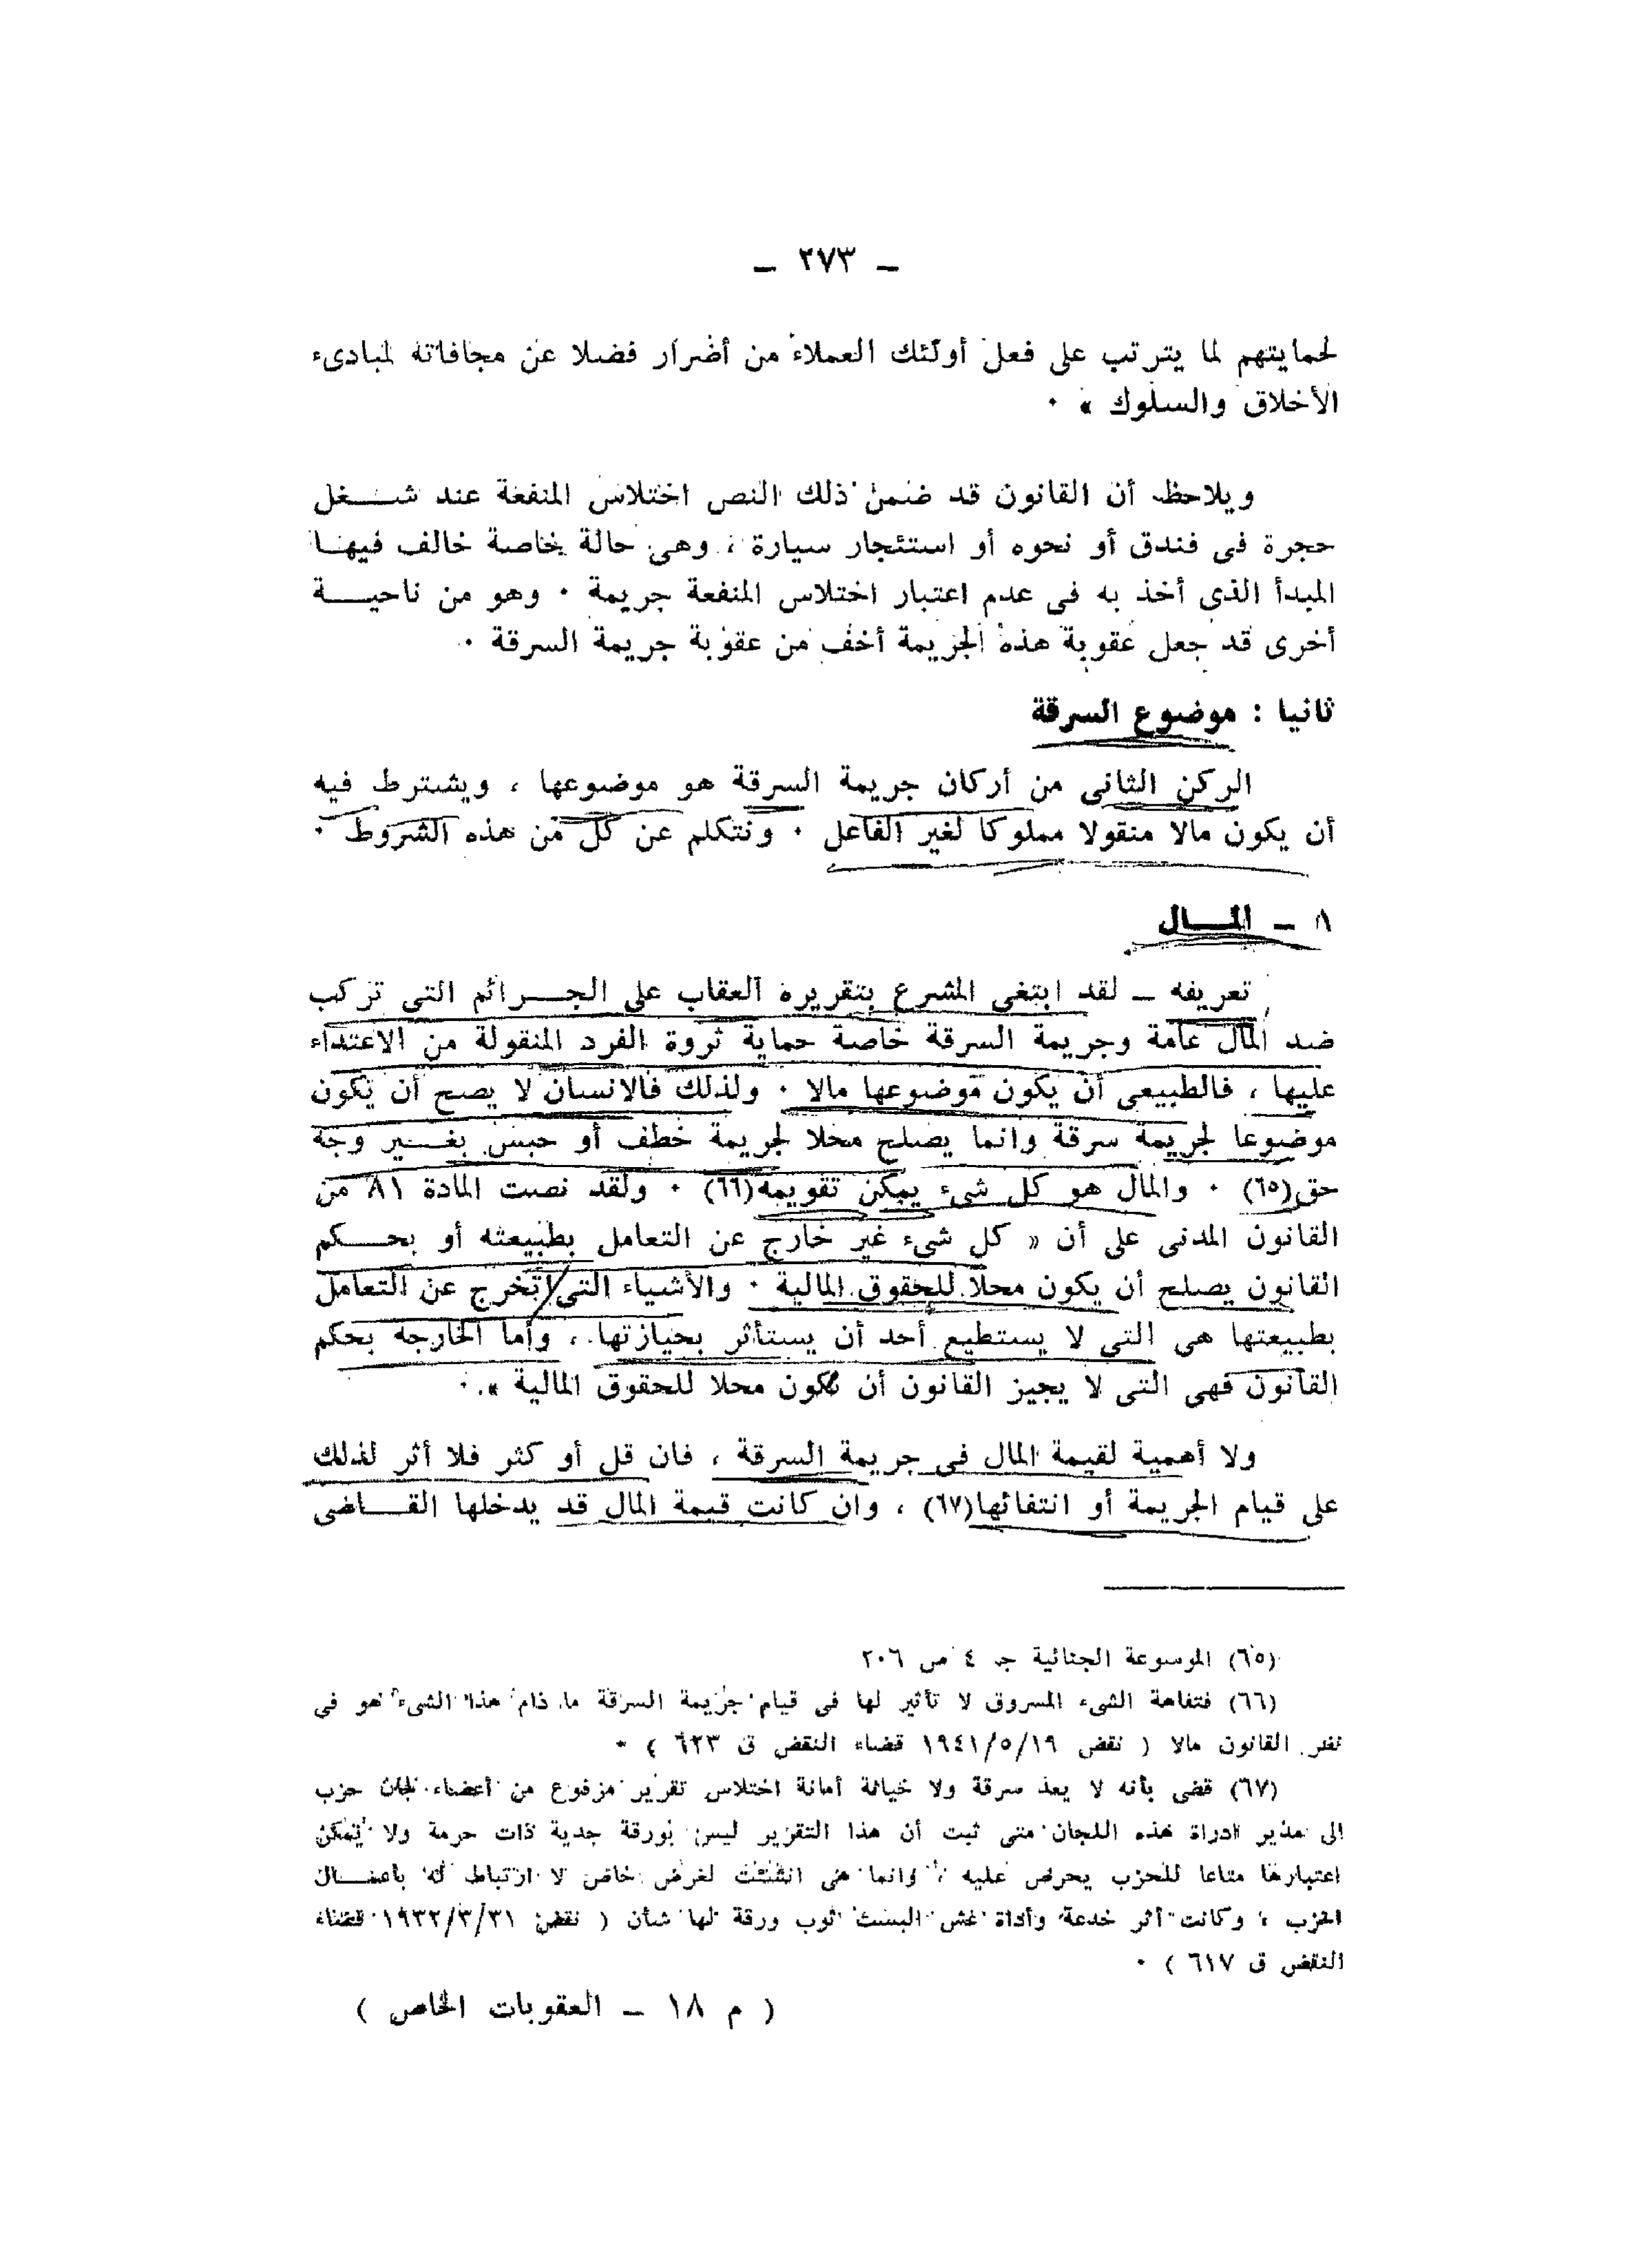 — ٢٧٣ —
لحمايتهم لما يترتب على فعل أولئك العملاء من أضرار فضلا عن مجافاته لمبادىء
الأخلاق والسلوك » ٠
ويلاحظ أن القانون قد ضمن ذلك النص اختلاس المنفعة عند شــغل
حجرة فى فندق أو نحوه أو استئجار سيارة ، وهى حالة خاصة خالف فيهـا
المبدأ الذى أخذ به فى عدم اعتبار اختلاس المنفعة جريمة ٠ وهو من ناحيــة
أخرى قد جعل عقوبة هذه الجريمة أخف من عقوبة جريمة السرقة ٠
ثانيا : موضوع السرقة
الركن الثانى من أركان جريمة السرقة هو موضوعها ، ويشترط فيه
أن يكون مالا منقولا مملوكا لغير الفاعل ٠ ونتكلم عن كل من هذه الشروط ٠
١ — المــال
تعريفه — لقد ابتغى المشرع بتقريره العقاب على الجــرائم التى تركب
ضد المال عامة وجريمة السرقة خاصة حماية ثروة الفرد المنقولة من الاعتداء
عليها ، فالطبيعى أن يكون موضوعها مالا ٠ ولذلك فالانسان لا يصح أن يكون
موضوعا لجريمة سرقة وانما يصلح محلا لجريمة خطف أو حبس بغــير وجه
حق(٦٥) ٠ والمال هو كل شىء يمكن تقويمه(٦٦) ٠ ولقد نصت المادة ٨١ من
القانون المدنى على أن « كل شىء غير خارج عن التعامل بطبيعته أو بحــكم
القانون يصلح أن يكون محلا للحقوق المالية ٠ والأشياء التى تخرج عن التعامل
بطبيعتها هى التى لا يستطيع أحد أن يستأثر بحيازتها ، وأما الخارجة بحكم
القانون فهى التى لا يجيز القانون أن تكون محلا للحقوق المالية » ٠
ولا أهمية لقيمة المال فى جريمة السرقة ، فان قل أو كثر فلا أثر لذلك
على قيام الجريمة أو انتفائها(٦٧) ، وان كانت قيمة المال قد يدخلها القــاضى
(٦٥) الموسوعة الجنائية جـ ٤ ص ٢٠٦
(٦٦) فتفاهة الشىء المسروق لا تأثير لها فى قيام جريمة السرقة ما دام هذا الشىء هو فى
نظر القانون مالا ( نقض ١٩٤١/٥/١٩ قضاء النقض ق ٦٢٣ ) ٠
(٦٧) قضى بأنه لا يعد سرقة ولا خيانة أمانة اختلاس تقرير مرفوع من أعضاء لجان حزب
الى مدير ادراة هذه اللجان متى ثبت أن هذا التقرير ليس بورقة جدية ذات حرمة ولا يمكن
اعتبارها متاعا للحزب يحرص عليه ، وانما هى انشئت لغرض خاص لا ارتباط له بأعمــال
الحزب ، وكانت أثر خدعة وأداة غش البست ثوب ورقة لها شأن ( نقض ١٩٣٢/٣/٣١ قضاء
النقض ق ٦١٧ ) ٠
( م ١٨ — العقوبات الخاص )